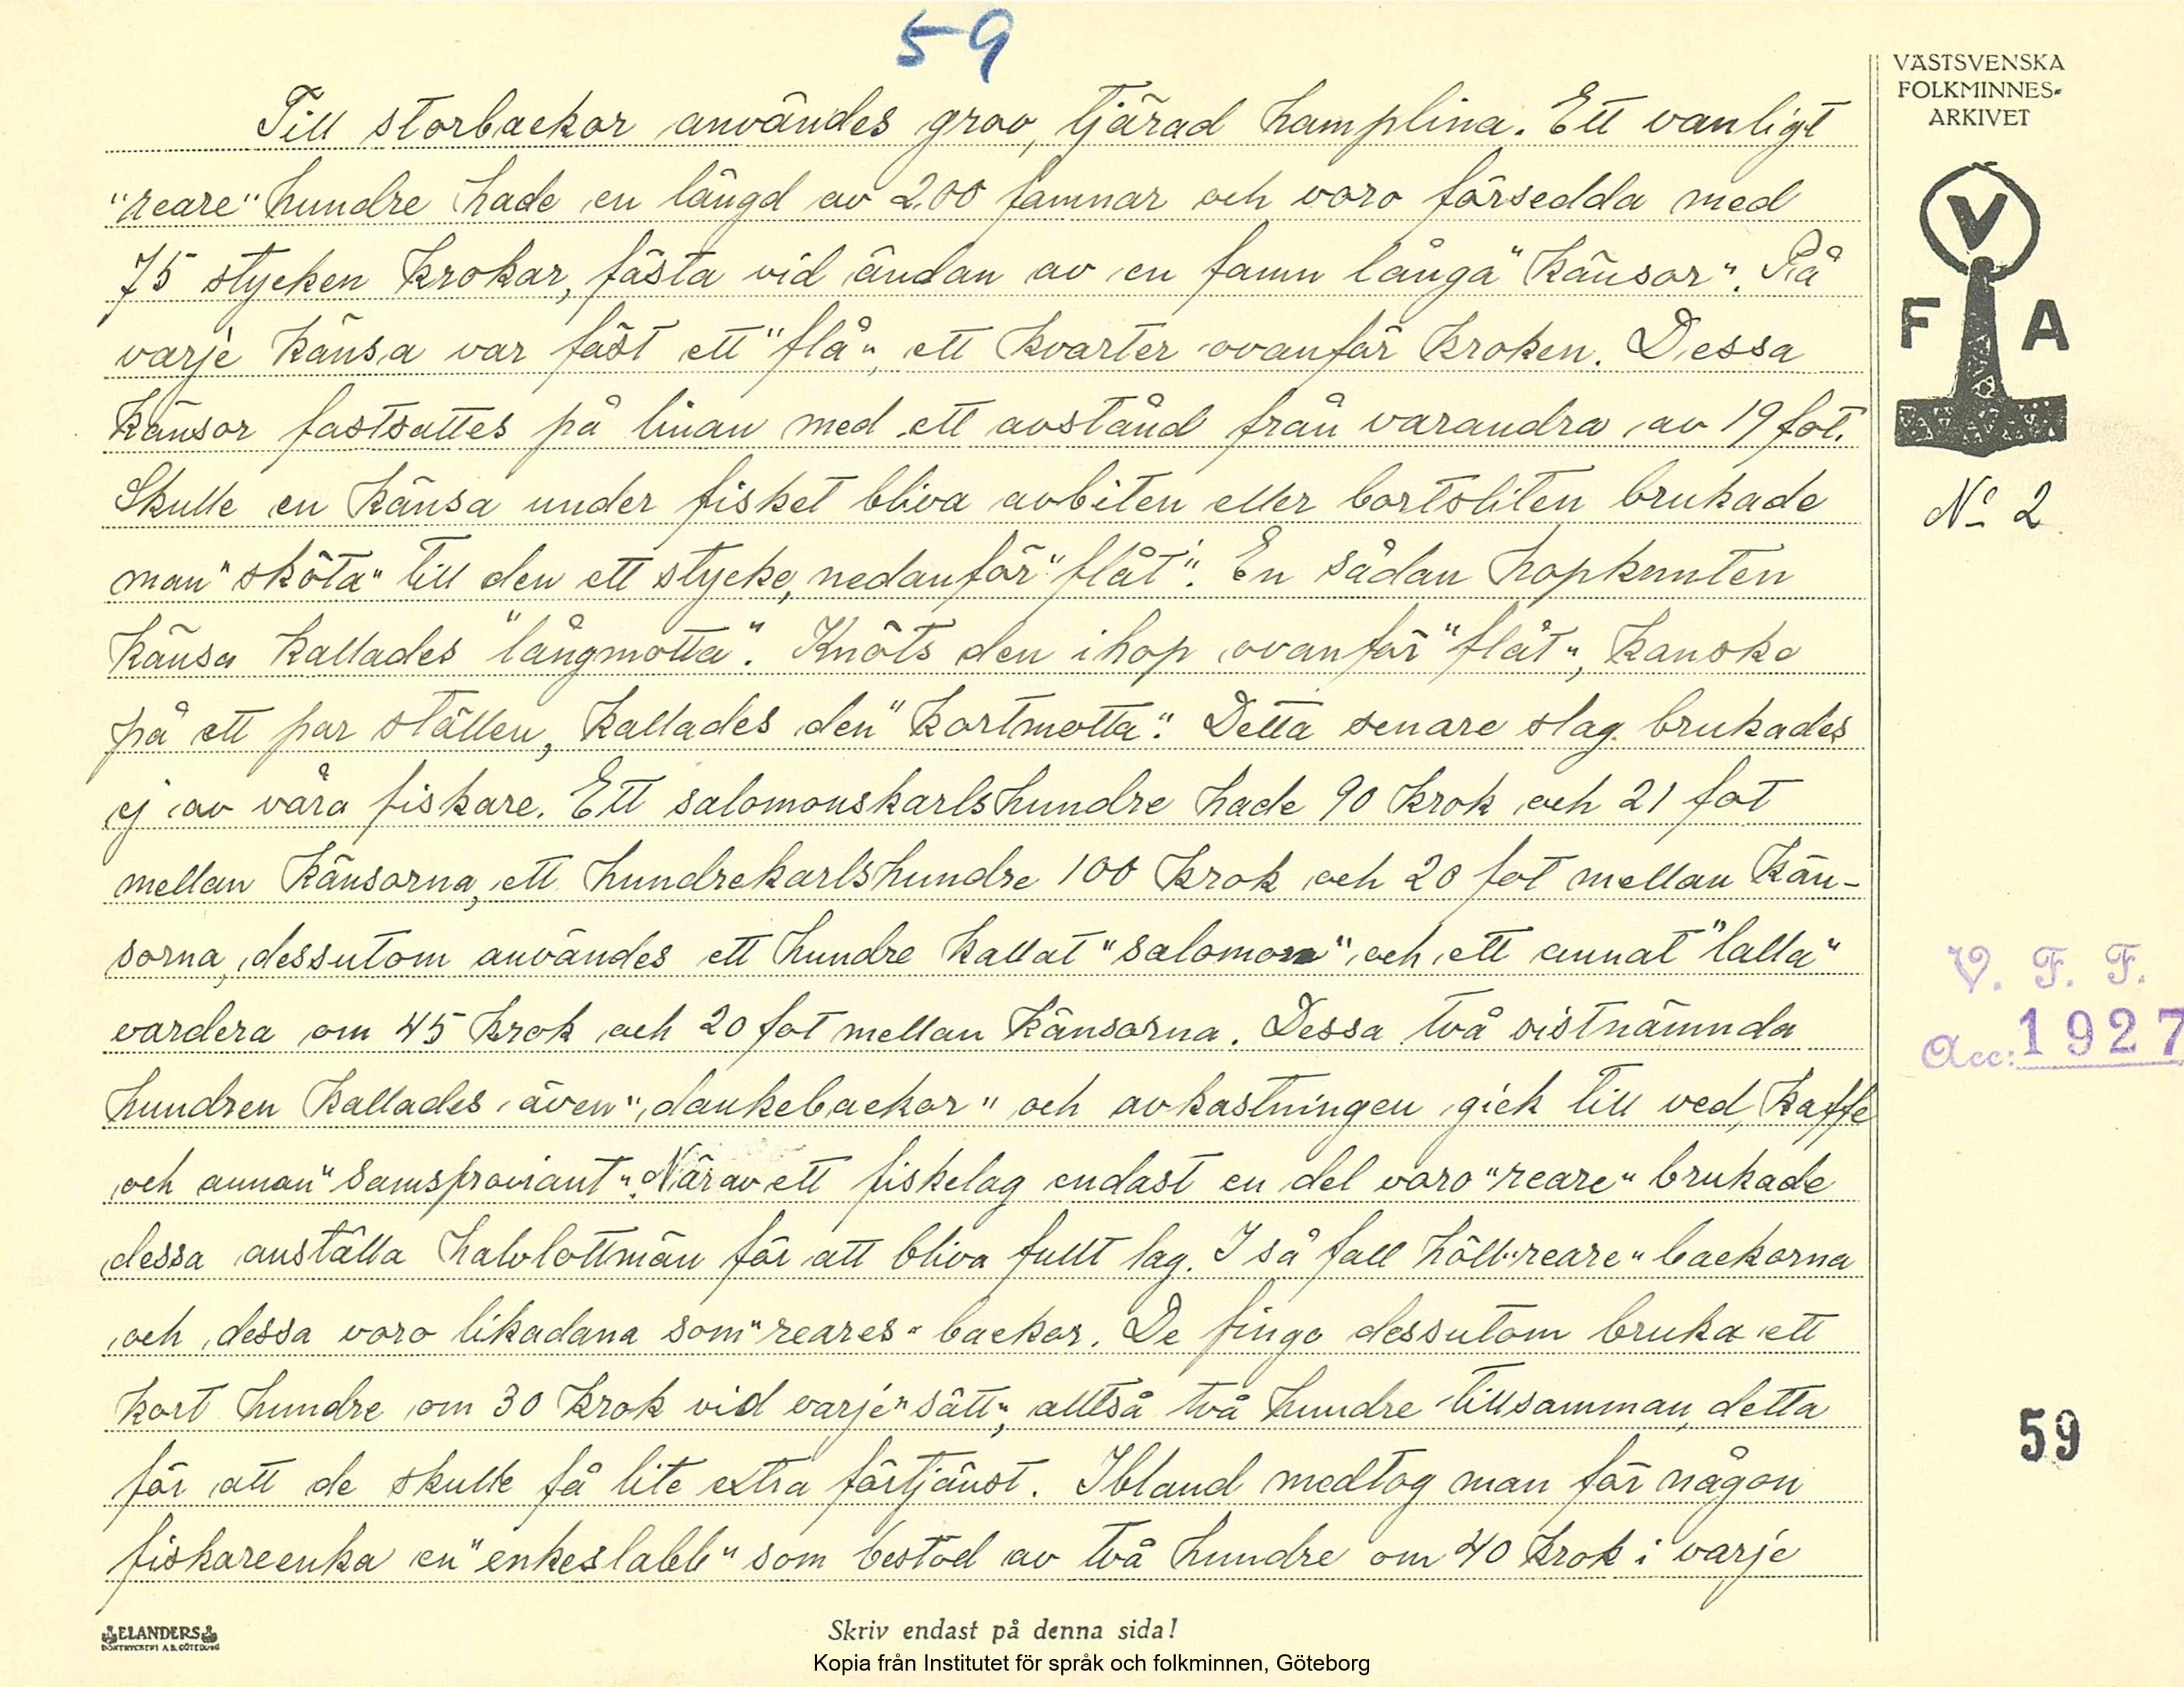 59
VÄSTSVENSKA
FOLKMINNES-
ARKIVET
Till storbackor användes grov, tjärad hamplina. Ett vanligt
"reare" hundre hade en längd av 200 famnar och voro försedda med
75 stycken krokar, fästa vid ändan av en famn långa "känsor". På
varje känsa var fäst ett "flå", ett kvarter ovanför kroken. Dessa
känsor fastsattes på linan med ett avstånd från varandra av 19 fot.
Skulle en känsa under fisket bliva avbiten eller bortsliten brukade
man "sköta" till den ett stycke, nedanför "flåt". En sådan hopknuten
känsa kallades "långmotta". Knöts den ihop ovanför "flåt", kanske
på ett par ställen, kallades den "kortmotta". Detta senare slag brukades
ej av våra fiskare. Ett salomonskarlshundre hade 90 krok och 21 fot
mellan känsorna, ett hundrekarlshundre 100 krok och 20 fot mellan kän-
sorna, dessutom användes ett hundre kallat "salomon" och ett annat "lalla"
vardera om 45 krok och 20 fot mellan känsorna. Dessa två sistnämnda
hundren kallades även "dankebackor" och avkastningen gick till ved, kaffe
och annan "samsproviant". När av ett fiskelag endast en del voro "reare" brukade
dessa anställa halvlottmän för att bliva fullt lag. I så fall höll "reare" backorna
och dessa voro likadana som "reares" backor. De fingo dessutom bruka ett
kort hundre om 30 krok vid varje "sätt", alltså två hundre tillsamman, detta
för att de skulle få lite extra förtjänst. Ibland medtog man för någon
fiskareenka en "enkeslabb" som bestod av två hundre om 40 krok i varje
V
F A
No 2
V. F. F.
Acc: 1927
59
ELANDERS
BOKTRYCKERI A.B. GÖTEBORG
Skriv endast på denna sida!
Kopia från Institutet för språk och folkminnen, Göteborg